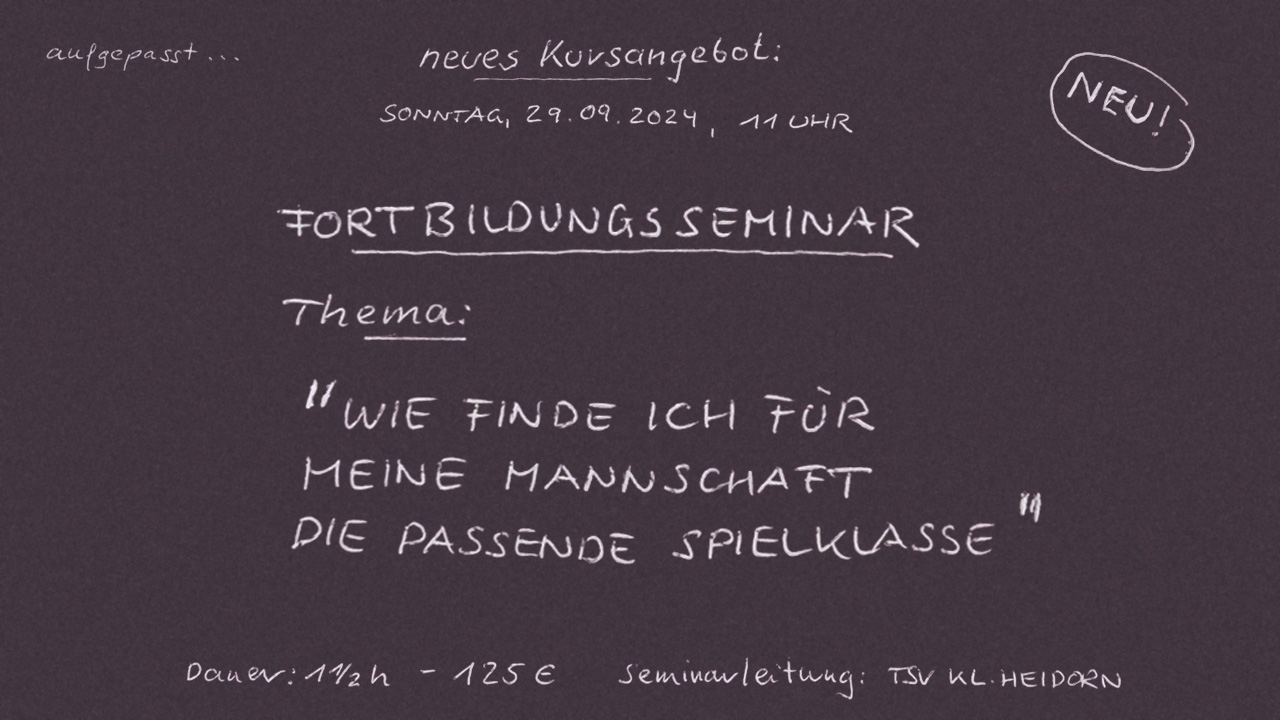 aufgepasst...
neues Kursangebot:
SONNTAG, 29.09.2024, 11 UHR
NEU!
FORTBILDUNGSSEMINAR
Thema:
"WIE FINDE ICH FÜR
MEINE MANNSCHAFT
DIE PASSENDE SPIELKLASSE"
Dauer: 1 1/2 h - 125 € Seminarleitung: TSV KL. HEIDORN